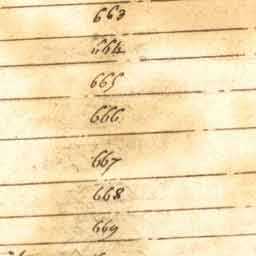 663
664
665
666
667
668
669